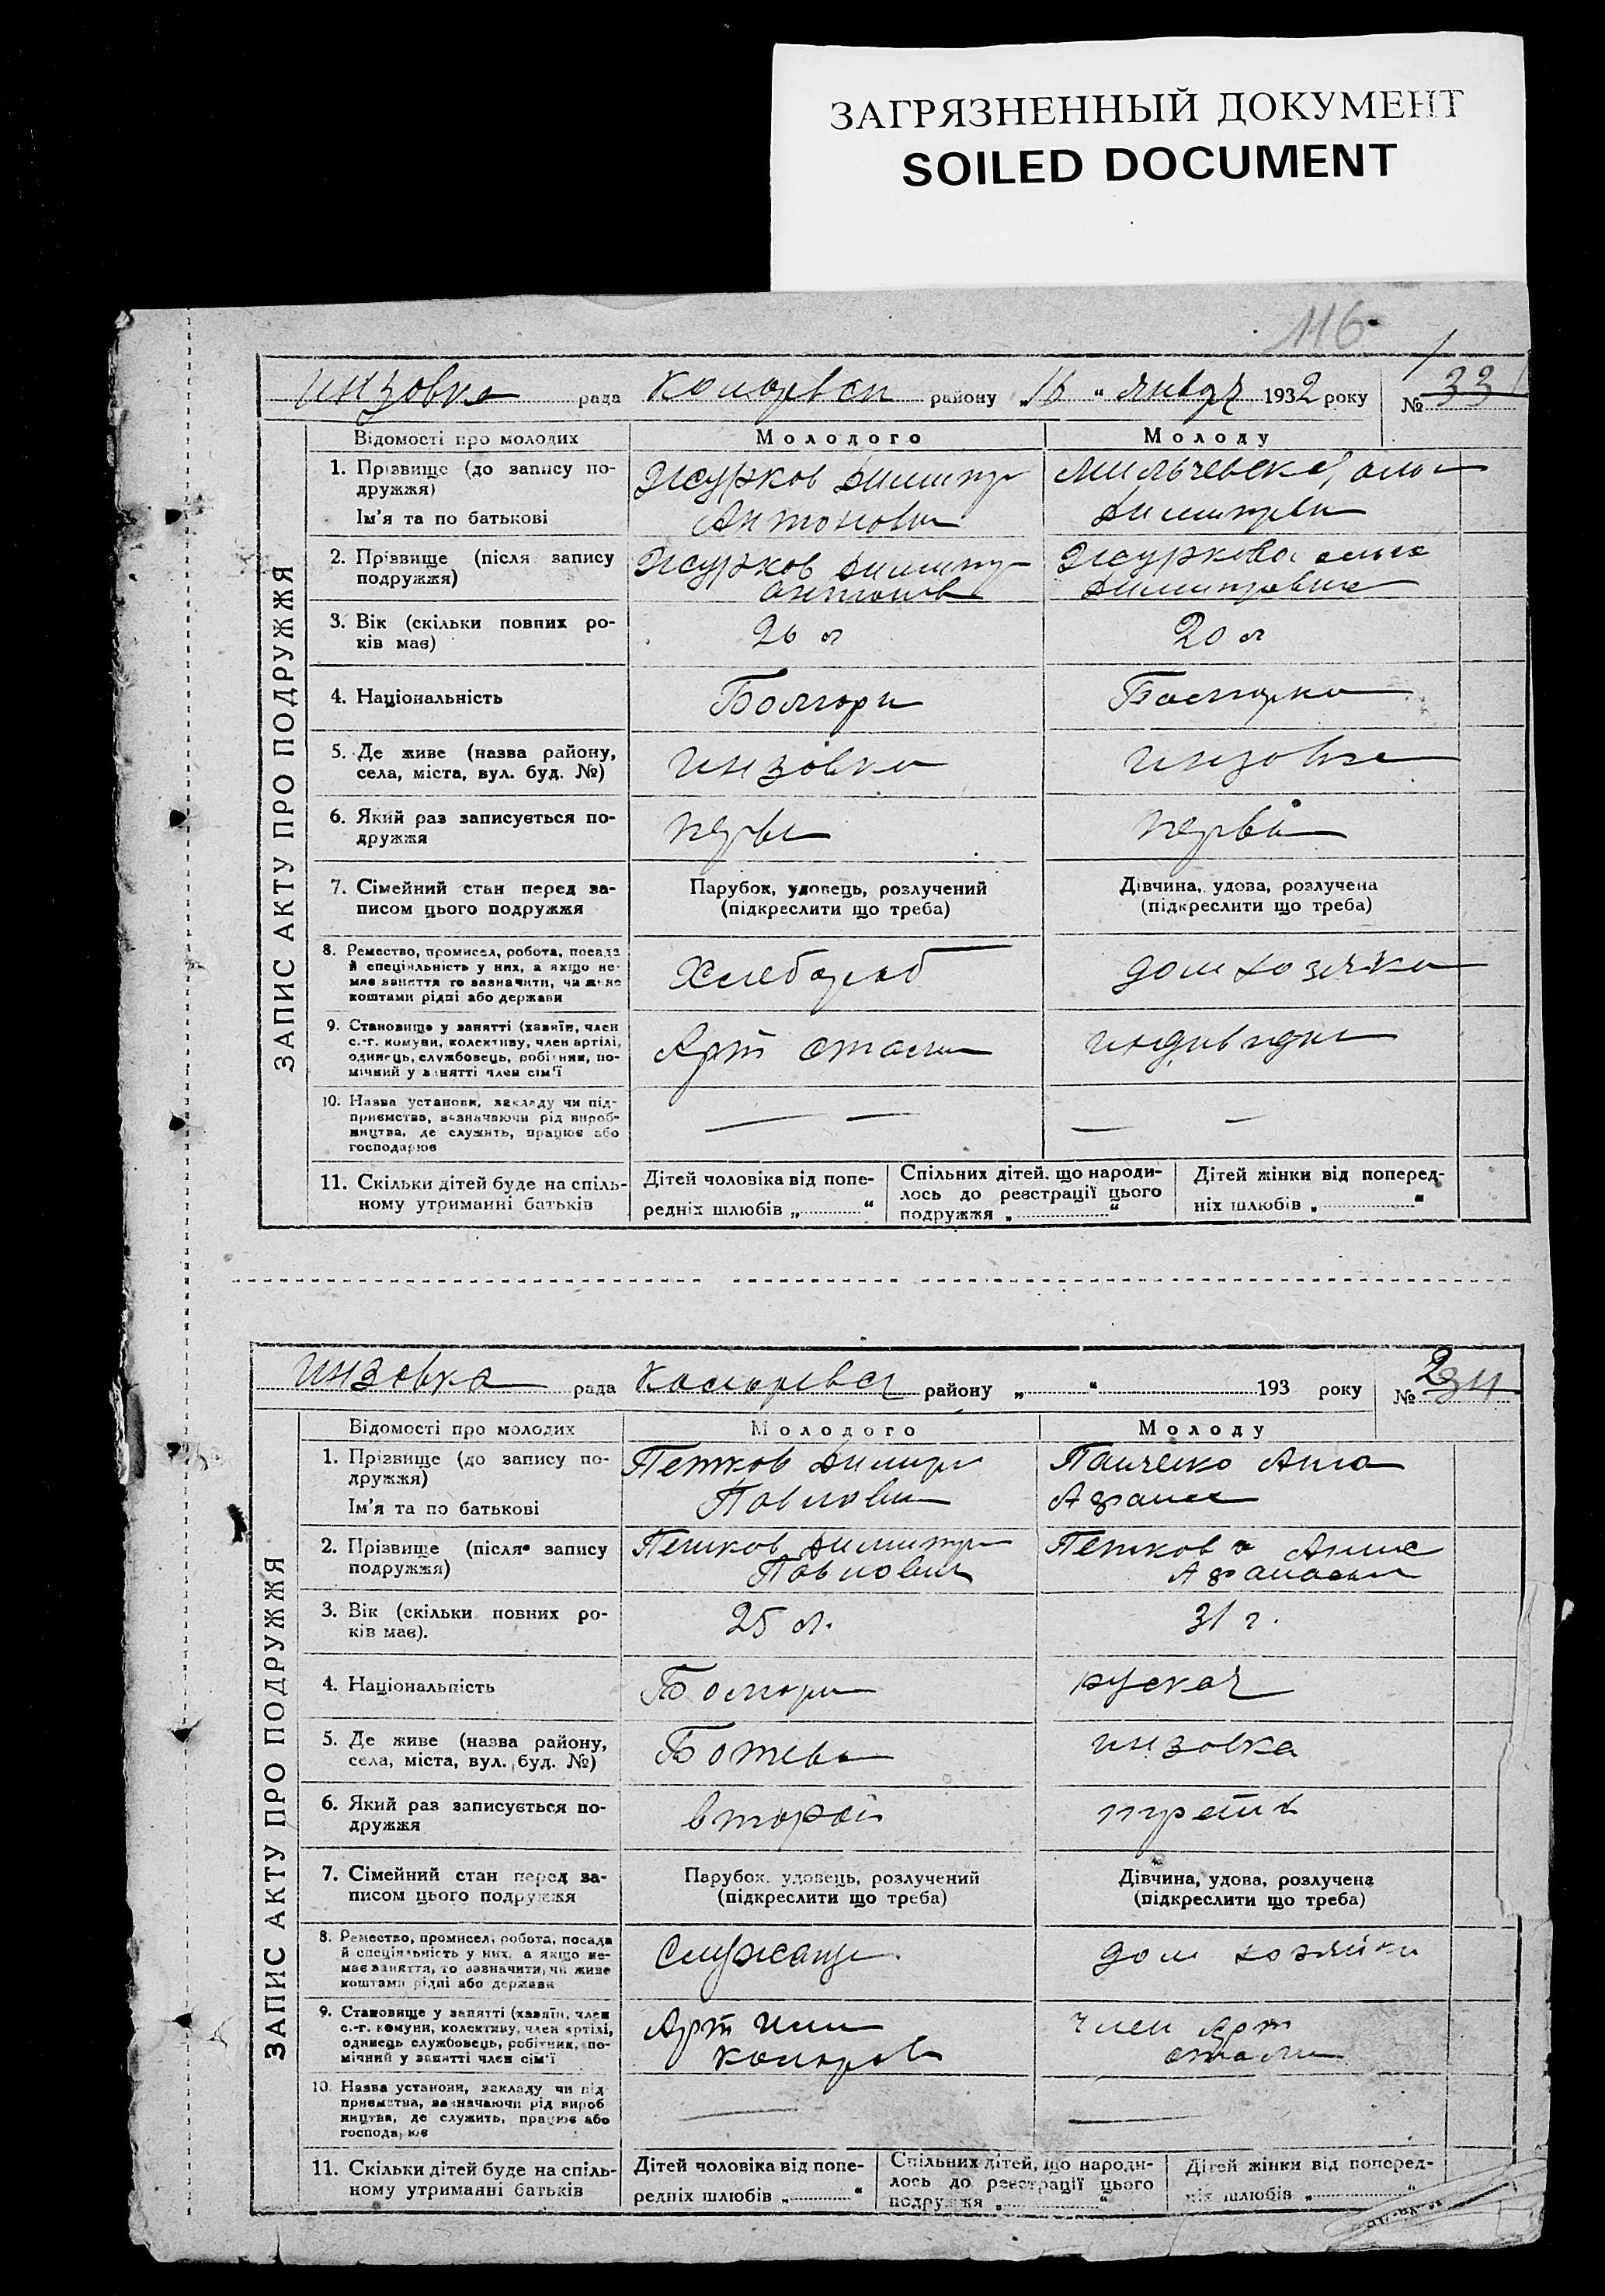 ЗАГРЯЗНЕННЫЙ ДОКУМЕНТ
SOILED DOCUMENT
116
Инзовка рада Коларвск району „16 “ январ 1932 року № 33
1
ЗАПИС АКТУ ПРО ПОДРУЖЖЯ
Відомості про молодих Молодого Молоду
1. Прізвище (до запису по-
дружжя)
Ім'я та по батькові
Журков Димитр
Антонови
Мильчевска
Димитрви
2. Прізвище (після запису
подружжя)
Журков Димитр
Антонов
Журкова Ольга
Димитровна
3. Вік (скільки повних ро-
ків має) 26 л 20 л
4. Національність Болгари Болгарка
5. Де живе (назва району,
села, міста, вул. буд. №) Инзовка Инзовка
6. Який раз записується по-
дружжя перви перва
7. Сімейний стан перед за-
писом цього подружжя
Парубок, удовець, розлучений
(підкреслити що треба)
Дівчина, удова, розлучена
(підкреслити що треба)
8. Ремество, промисел, робота, посада
й спеціяльність у них, а якщо не-
має заняття то зазначити, чи живе
коштами рідні або держави
Хлебороб дом хозяйка
9. Становище у занятті (хазяїн, член
с.-г. комуни, колективу, член артілі,
одинець, службовець, робітник, по-
мічний у занятті член сім'ї
Арт Сталин индивидуал
10. Назва установи, закладу чи під-
приємства, зазначаючи рід вироб-
ництва, де служить, працює або
господарює
— — — —
11. Скільки дітей буде на спіль-
ному утриманні батьків
Дітей чоловіка від попе-
редніх шлюбів „ “
Спільних дітей, що народи-
лось до реєстрації цього
подружжя „ “
Дітей жінки від поперед-
ніх шлюбів „ “
Инзовка рада Коларвск району „ “ 193 року № 34
2
ЗАПИС АКТУ ПРО ПОДРУЖЖЯ
Відомості про молодих Молодого Молоду
1. Прізвище (до запису по-
дружжя)
Ім'я та по батькові
Петков Димитр
Павлови
Панченко Анна
2. Прізвище (після запису
подружжя)
Петков Димитр
Павлович
Петкова Анна
Афанасьевна
3. Вік (скільки повних ро-
ків має). 25 л. 31 г.
4. Національність Болгари руская
5. Де живе (назва району,
села, міста, вул. буд. №) Ботева Инзовка
6. Який раз записується по-
дружжя второй третий
7. Сімейний стан перед за-
писом цього подружжя
Парубок, удовець, розлучений
(підкреслити що треба)
Дівчина, удова, розлучена
(підкреслити що треба)
8. Ремество, промисел, робота, посада
й спеціяльність у них, а якщо не-
має заняття, то зазначити, чи живе
коштами рідні або держави
Служащи дом хозяйки
9. Становище у занятті (хазяїн, член
с.-г. комуни, колективу, член артілі,
одинець службовець, робітник, по-
мічний у занятті член сім'ї
Арт Им
Коларов
член Арт
Сталин
10. Назва установи, закладу чи під
приємства, зазначаючи рід вироб
ництва, де служить, працює або
господарює
— —
11. Скільки дітей буде на спіль-
ному утриманні батьків
Дітей чоловіка від попе-
редніх шлюбів „ “
Спільних дітей, що народи-
лось до реєстрації цього
подружжя „ “
Дітей жінки від поперед-
ніх шлюбів „ “